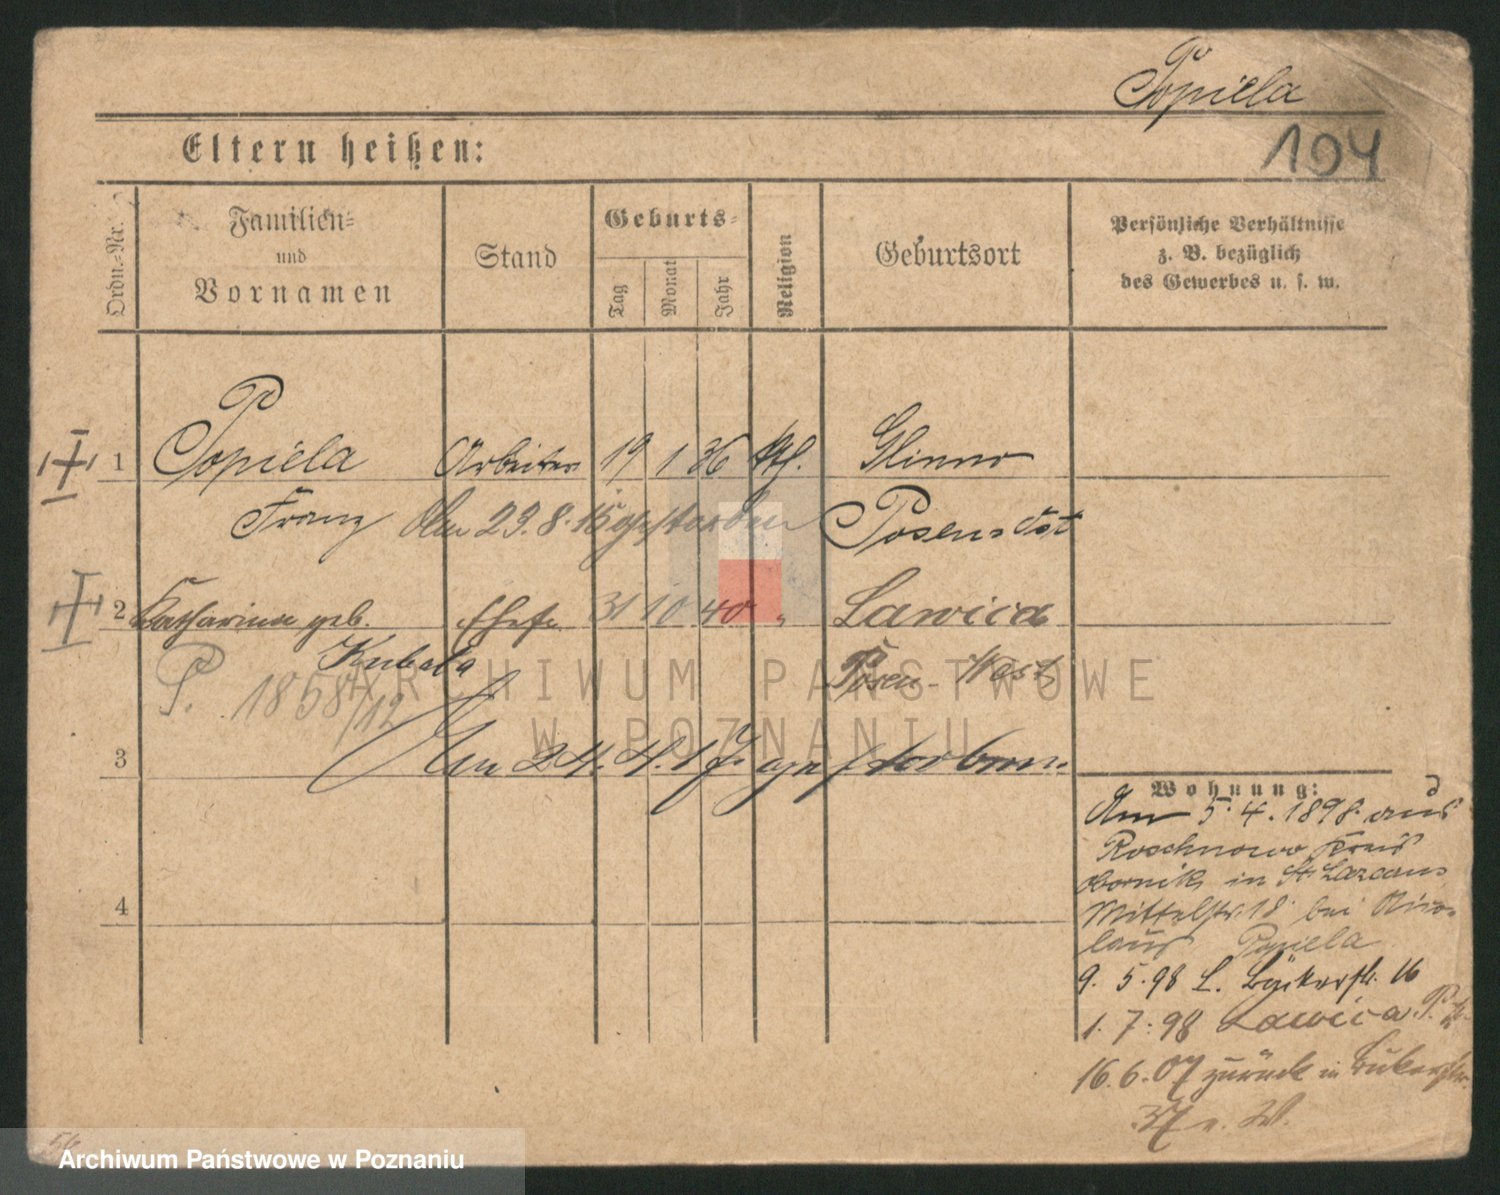 Popiela
104
Eltern heißen:
Ordn.-Nr.
Familien-
und
Vornamen
Stand
Geburts-
Tag
Monat
Jahr
Religion
Geburtsort
Persönliche Verhältnisse
z. B. bezüglich
des Gewerbes u. s. w.
1 Popiela Arbeiter 19 1 36 Kth. Glinno
Franz Am 29.8.15 gestorben Posen-Ost
2 Katharina geb. Ehefr. 31 10 40 " Lawica
Kubata Posen-West
P. 1858/12
ARCHIWUM PAŃSTWOWE
W POZNANIU
3 Am 24.4.17 gestorben.
Wohnung:
Am 5.4.1898 aus
Roschnowo Kreis
Obornik in St. Lazarus
Mittelstr. 18 bei Nico-
laus Popiela
9. 5. 98 L. Bäckerstr. 16
1. 7. 98 Lawica P.
16.6.07 zurück in
37 b. W.
4
56
Archiwum Państwowe w Poznaniu